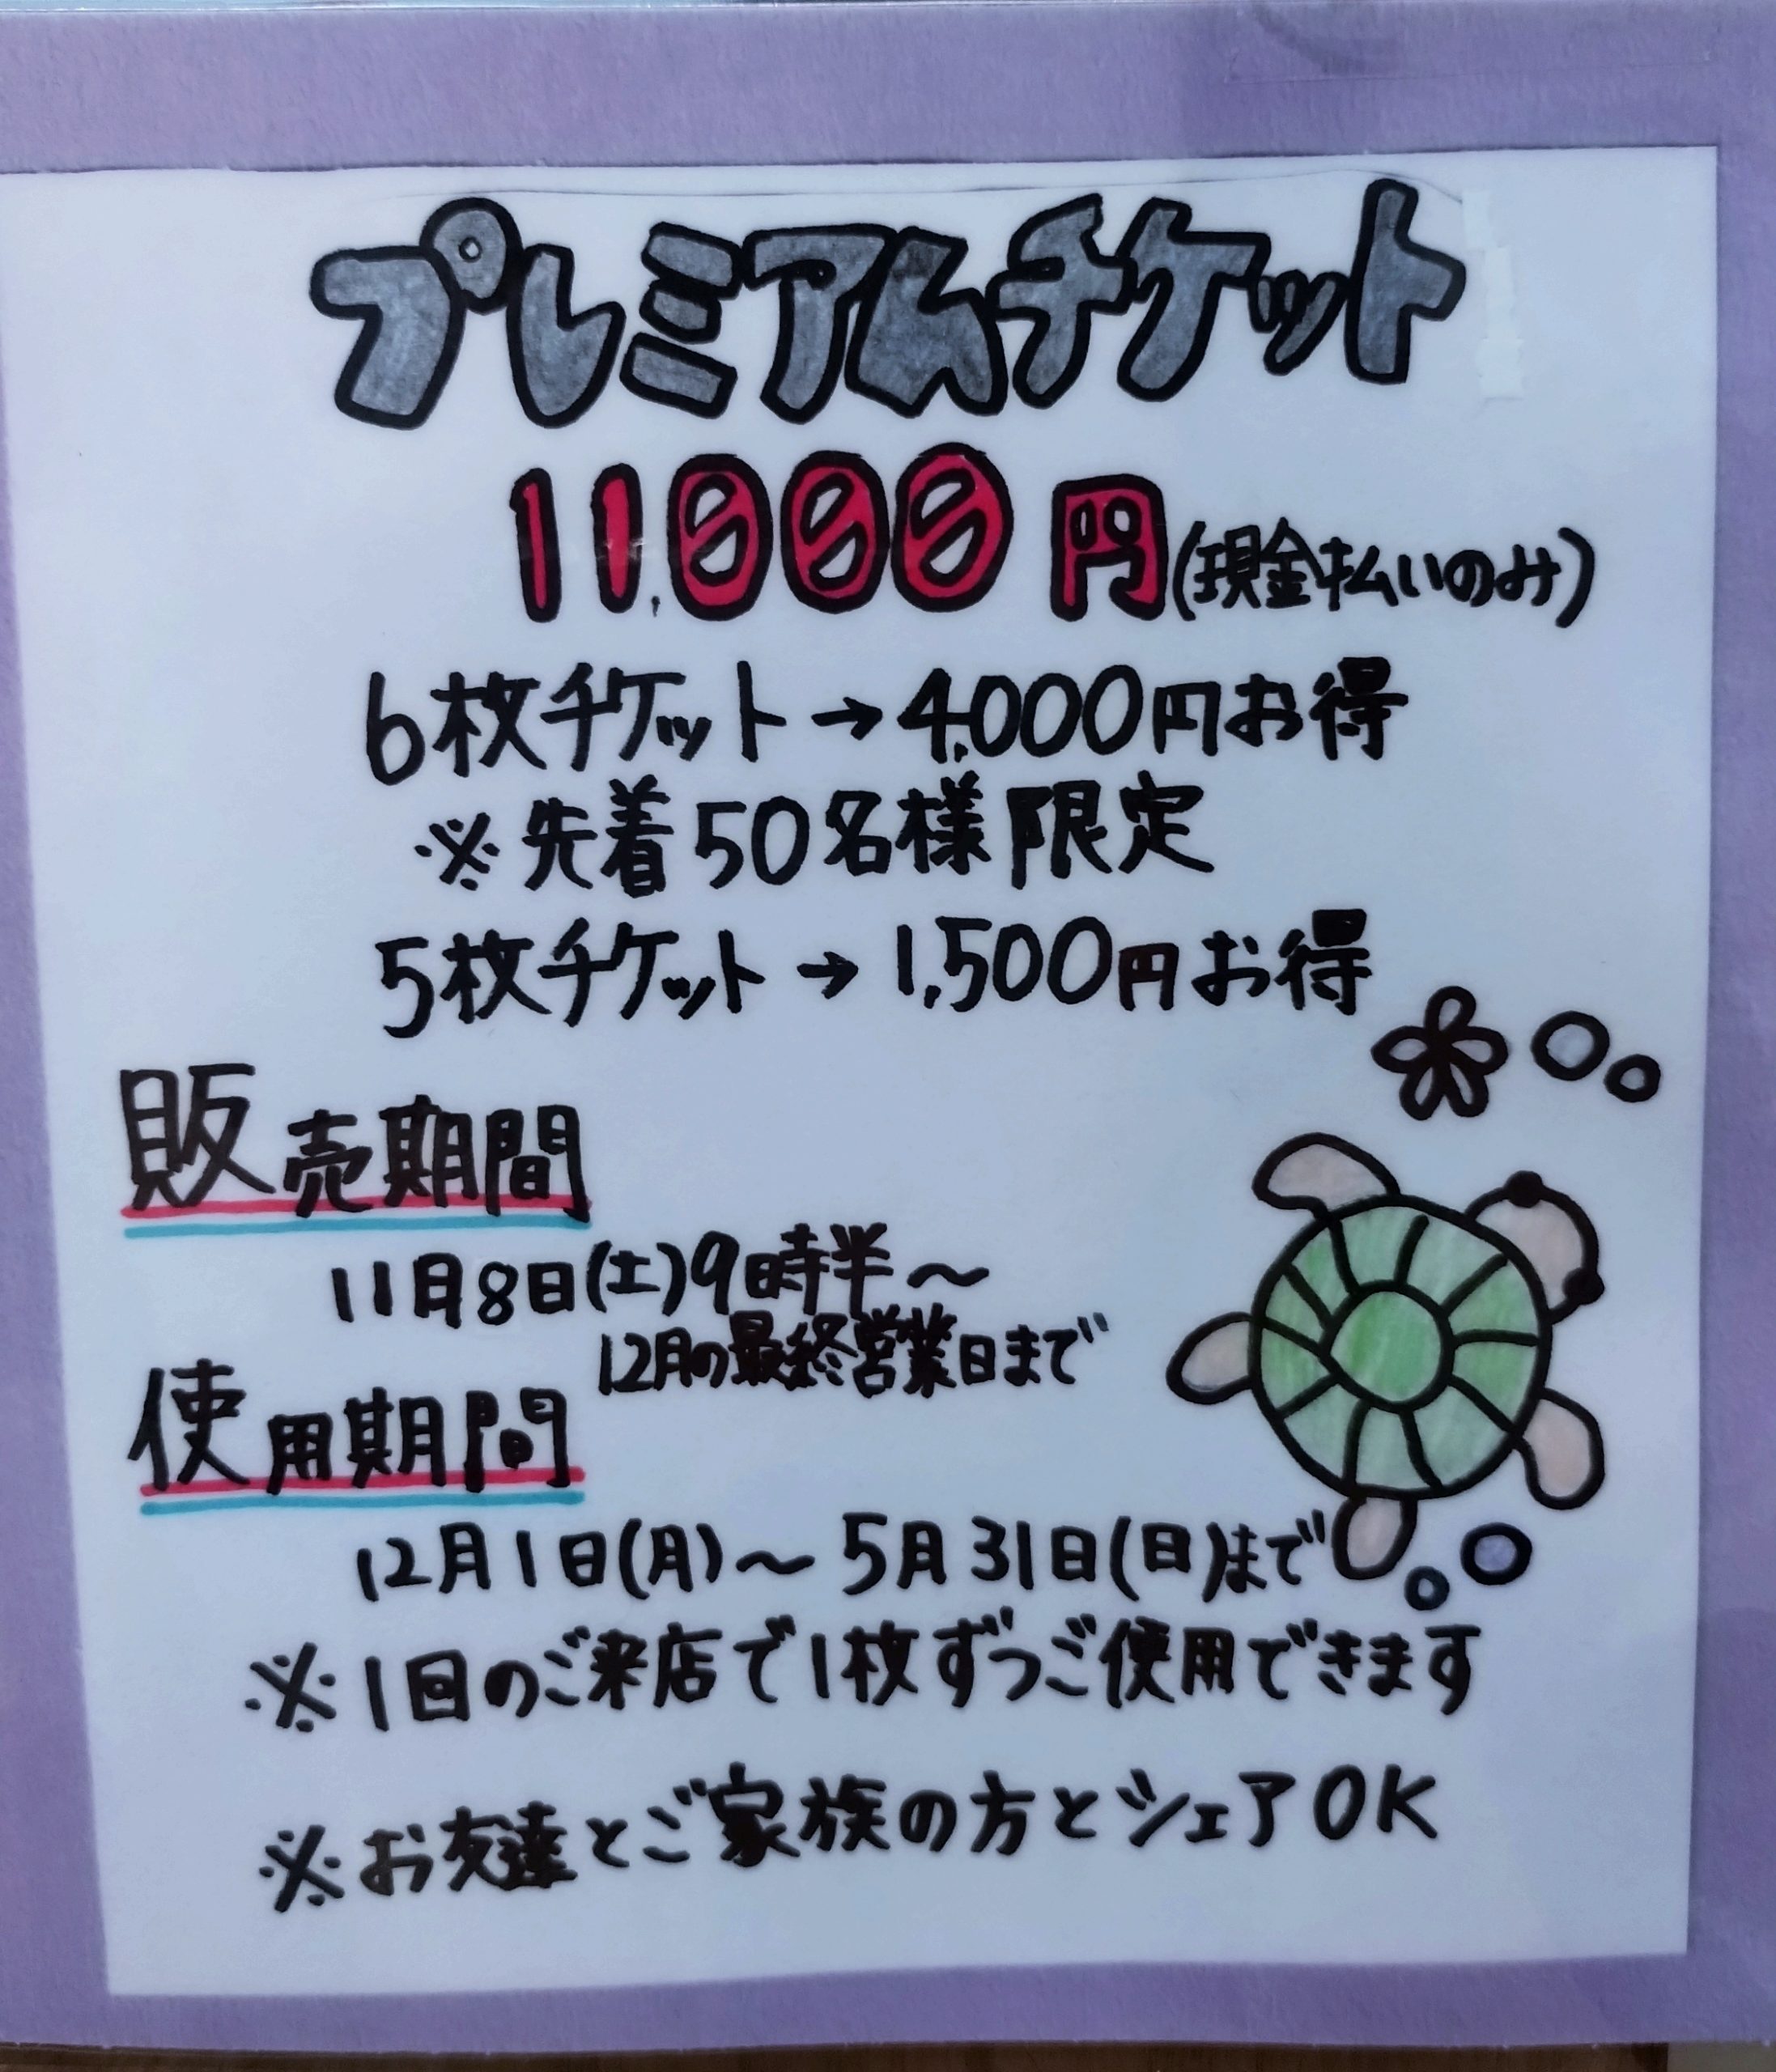 プレミアムチケット
11,000円(現金払いのみ)
6枚チケット→4,000円お得
※先着50名様限定
5枚チケット→1,500円お得
販売期間
11月8日(土)9時半～
12月の最終営業日まで
使用期間
12月1日(月)～5月31日(日)まで
※1回のご来店で1枚ずつご使用できます
※お友達とご家族の方とシェアOK